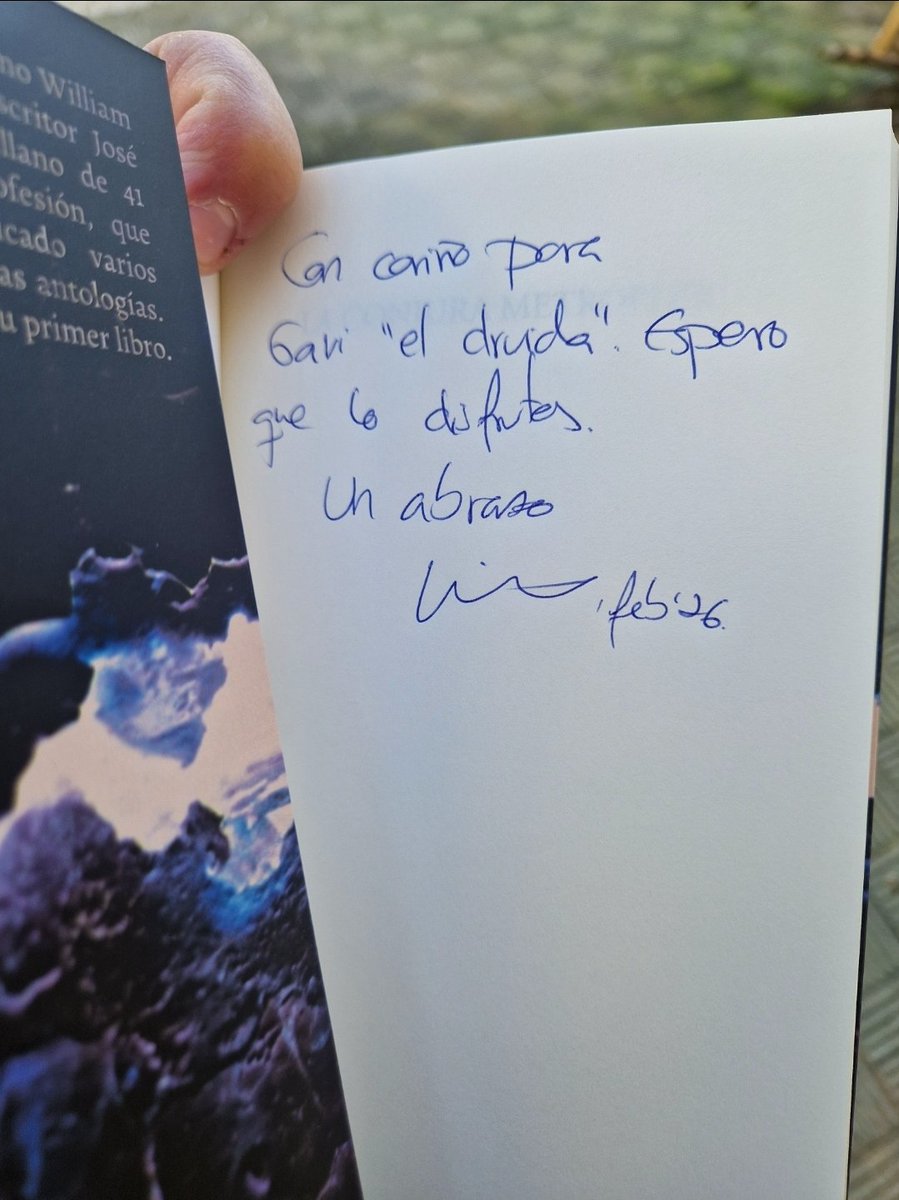 no William
scritor José
llano de 41
ofesión, que
icado varios
as antologías.
u primer libro.
Con cariño para
Gavi "el druida". Espero
que lo disfrutes.
Un abrazo
, feb'26.